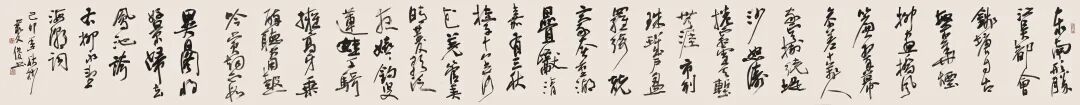 東南形勝
江吳都會
錢塘自古
繁華煙
柳畫橋風
簾翠幕
參差十萬人
家雲樹繞堤
沙怒濤
捲霜雪天塹
無涯市列
珠璣户盈
羅綺競
豪奢重湖
疊巘清
嘉有三秋
桂子十里荷
花羌管弄
晴菱歌泛
夜嬉嬉釣叟
蓮娃千騎
擁高牙乘
醉聽簫鼓
吟賞煙霞
異日圖將
好景歸去
鳳池誇
右柳永望
海潮詞
己卯